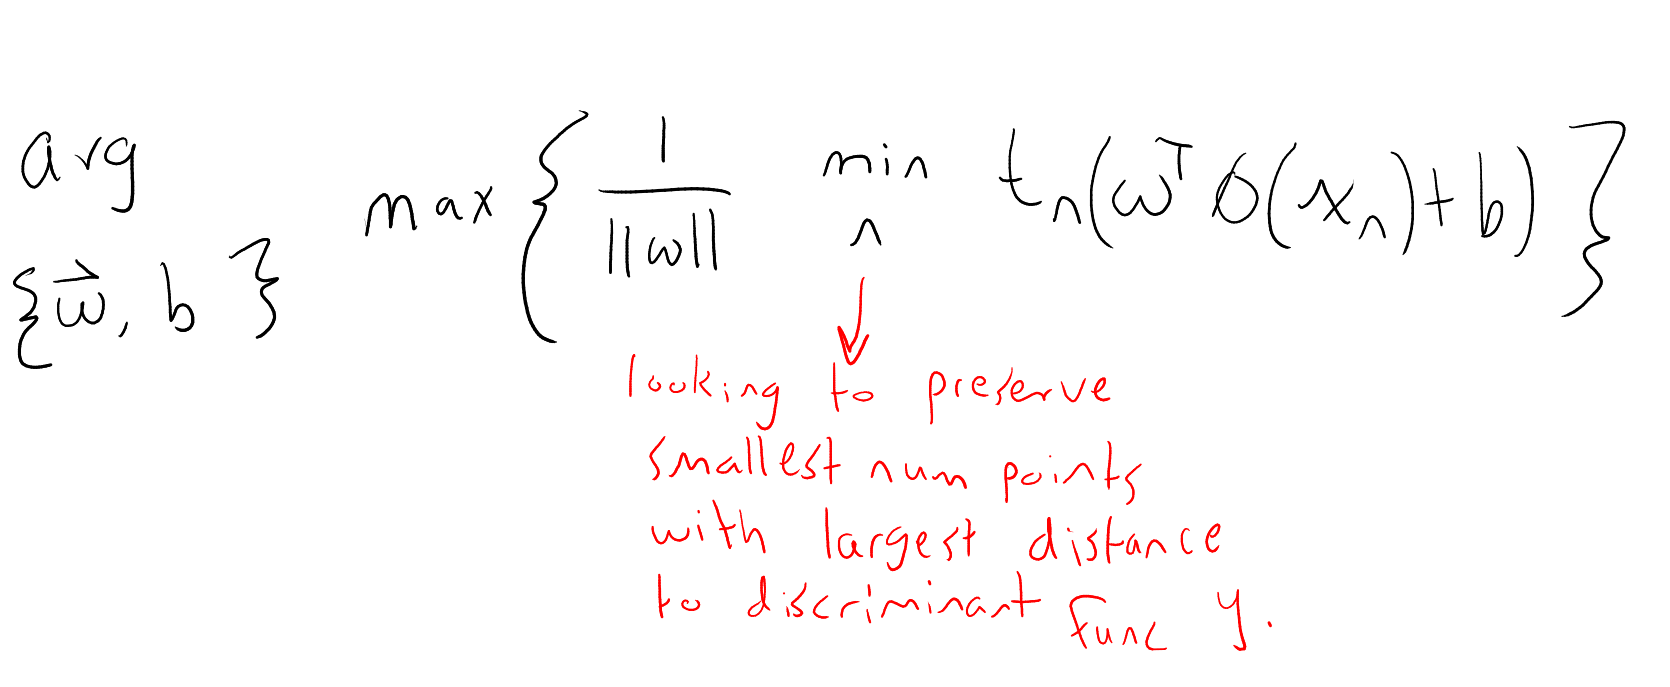 arg max { 1/||ω|| min t_n(ω^T ϕ(x_n)+b) }
{ω⃗, b} n
looking to preserve
smallest num points
with largest distance
to discriminant func y.